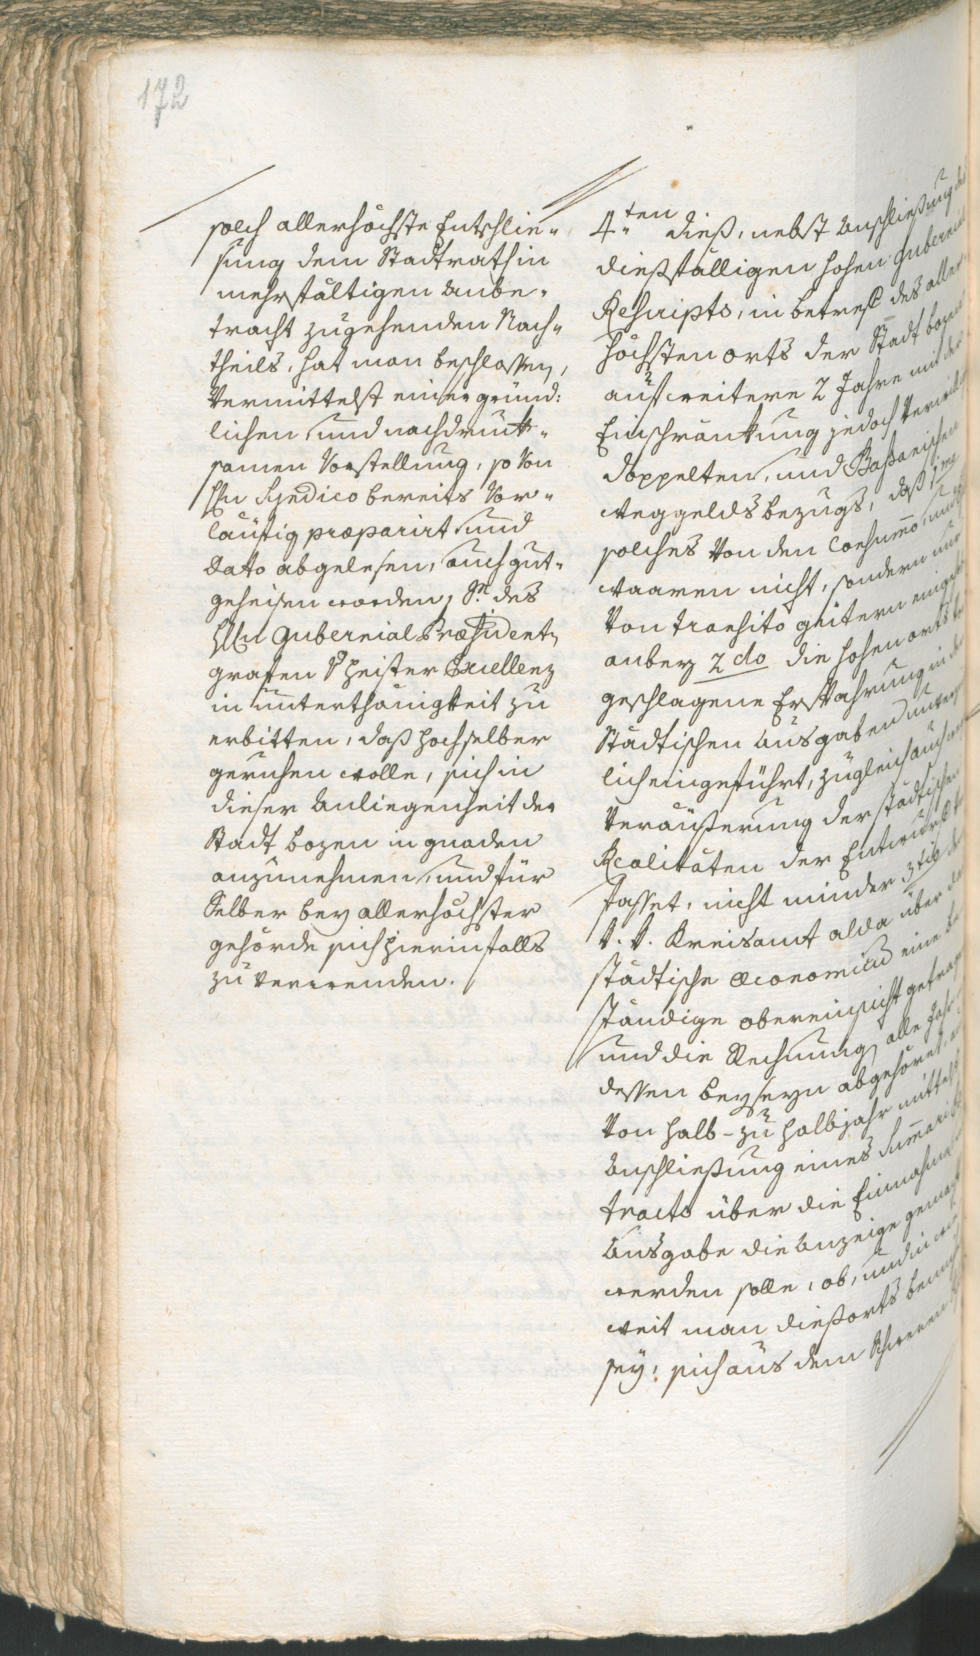 172
solch allerhöchste Entschlie„
sung dem Stadtrath in
mehrfältigen Anbe„
tracht zugehenden Nach„
theils, hat man beschlossen,
Vermittelst einer gründ:
lichen und nachdruk„
samen Vorstellung, so Von
H: Syndico bereits Vor„
läufig præparirt und
Dato abgelesen, auch gut„
geheisen worden, Sr. des
H: Gubernial Præsident,
grafen Heister Excellenz
in unterthänigkeit zu
erbitten, daß hochselber
geruhen wolle, sich in
dieser Anliegenheit der
Stadt bozen in gnaden
anzunehmen, und für
Selbe bey allerhöchster
gehörde sich hierinfalls
zu verwenden.
4ten dieß, nebst Anschließung
dießfälligen hohen Gubernial
Rescripts, in betref des aller
höchsten orts der Stadt bozen
auf weitere 2 Jahre mit der
Einschränkung jedoch
doppelten, und Baßanischen
weggelds bezugs, daß 1mo
solches Von den Consumo, und
waaren nicht, sondern nur
Von transito gütern
anbey 2do die hohen orts
geschlagene Ersparung in den
Städtischen Ausgaben
lich eingeführt, zugleich auch
Veräußerung der städtischen
Realitäten der Entwurf
fasset, nicht minder 3tio
k. k. Kreisamt alda über
städtische œconomicum eine
ständige obereinsicht getragen
und die Rechnung alle Jahr
dessen beyseyn abgehöret,
Von halb- zu halbjahr mittels
Anschließung eines Summari
tracts über die Einnahme
Ausgabe die Anzeige gemacht
werden solle, ob, und in wie
weit man dießorts
sey, sich aus dem